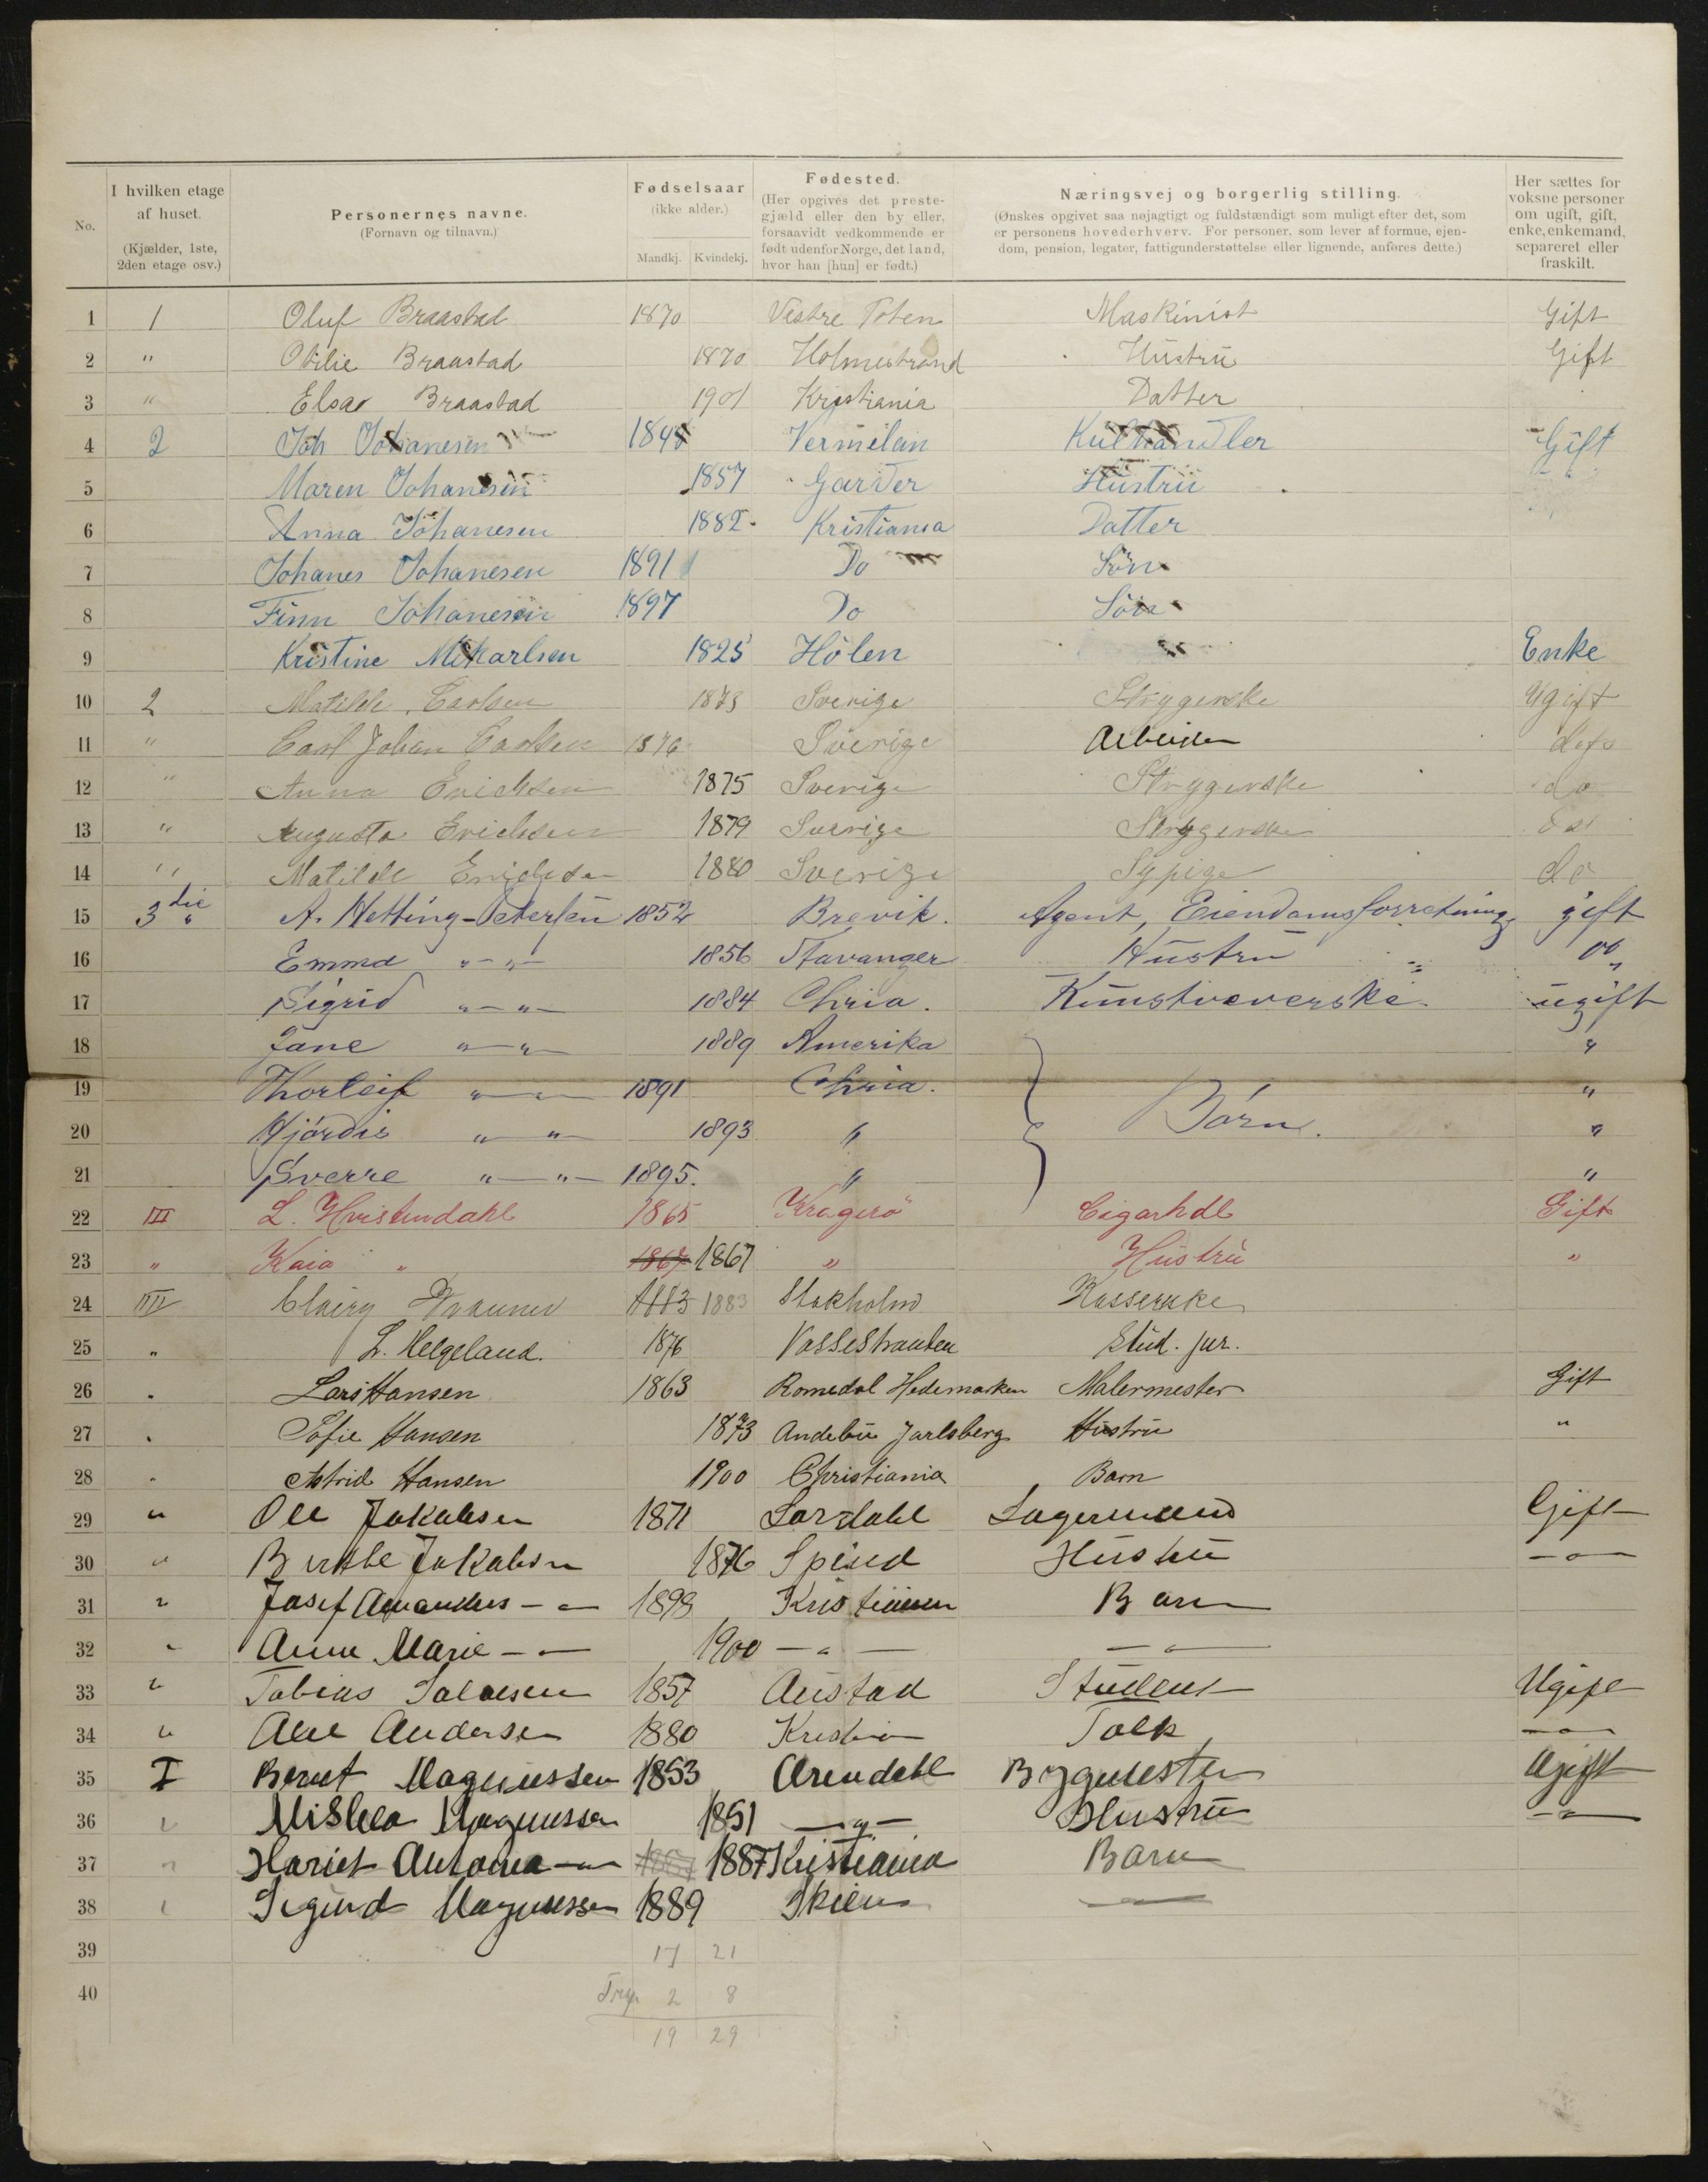 No.
I hvilken etage af huset. (Kjælder, 1ste, 2den etage osv.)
Personernes navne. (Fornavn og tilnavn.)
Fødselsaar (ikke alder.) Mandkj. Kvindekj.
Fødested. (Her opgives det prestegjæld eller den by eller, forsaavidt vedkommende er født udenfor Norge, det land, hvor han [hun] er født.)
Næringsvej og borgerlig stilling. (Ønskes opgivet saa nøjagtigt og fuldstændigt som muligt efter det, som er personens hovederhverv. For personer, som lever af formue, ejendom, pension, legater, fattigunderstøttelse eller lignende, anføres dette.)
Her sættes for voksne personer om ugift, gift, enke, enkemand, separeret eller fraskilt.
1 1 Oluf Braastad 1870 Vestre Toten Maskinist Gift
2 " Otilie Braastad 1870 Holmestrand Hustru Gift
3 " Elsa Braastad 1901 Kristiania Datter
4 2 Joh Johanesen 1848 Vermelan Kulhandler Gift
5 Maren Johanesen 1857 Garder Hustru "
6 Anna Johanesen 1882 Kristiania Datter
7 Johanes Johanesen 1891 Do Sön
8 Finn Johanesen 1897 Do Sön
9 Kristine Mikarlsen 1825 Hölen Enke
10 2 Matilde Carlsen 1873 Sverige Strygerske Ugift
11 " Carl Johan Carlsen 1876 Sverige Arbeider do
12 " Anna Erichsen 1875 Sverige Strygerske do
13 " Augusta Erichsen 1879 Sverige Strygerske do
14 " Matilde Erichsen 1880 Sverige Sypige do
15 3die A. Netting-Petersen 1852 Brevik. Agent, Eiendomsforretning gift
16 Emma " " 1856 Stavanger Hustru "
17 Sigrid " " 1884 Chria. Kunstvæverske ugift
18 Jane " " 1889 Amerika "
19 Thorleif " " 1891 Chria. "
20 Hjördis " " 1893 " Börn. "
21 Sverre " " 1895. " "
22 III L. Hvistendahl 1865 Kragerö Cigarhdl Gift
23 " Kaia " 1867 1867 " Hustru "
24 IIII 1883 1883 Stokholm Kasserske
25 " L. Helgeland. 1876 Vossestranden Stud. jur.
26 " Lars Hansen 1863 Romedal Hedemarken Malermester Gift
27 " Sofie Hansen 1873 Andebu Jarlsberg Hustru "
28 " Astrid Hansen 1900 Christiania Barn
29 " Ole Jakobsen 1871 Lardahl Lagermand Gift
30 " Berthe Jakobsen 1876 Spind Hustru — " —
31 " Josef Amandus — " — 1898 Kristiania Barn
32 " Anne Marie — " — 1900 — " — — " —
33 " Tobias Salvesen 1857 Austad Student Ugift
34 " Andersen 1880 Kristia Tolk — " —
35 I Bernt Magnussen 1853 Arendahl Bygmester Gift
36 " Magnussen 1851 — " — Hustru — " —
37 " Hariet Antonia — " — 1887 Kristiania Barn
38 " Sigurd Magnussen 1889 Skien — " —
39 17 21
40 2 8
19 29